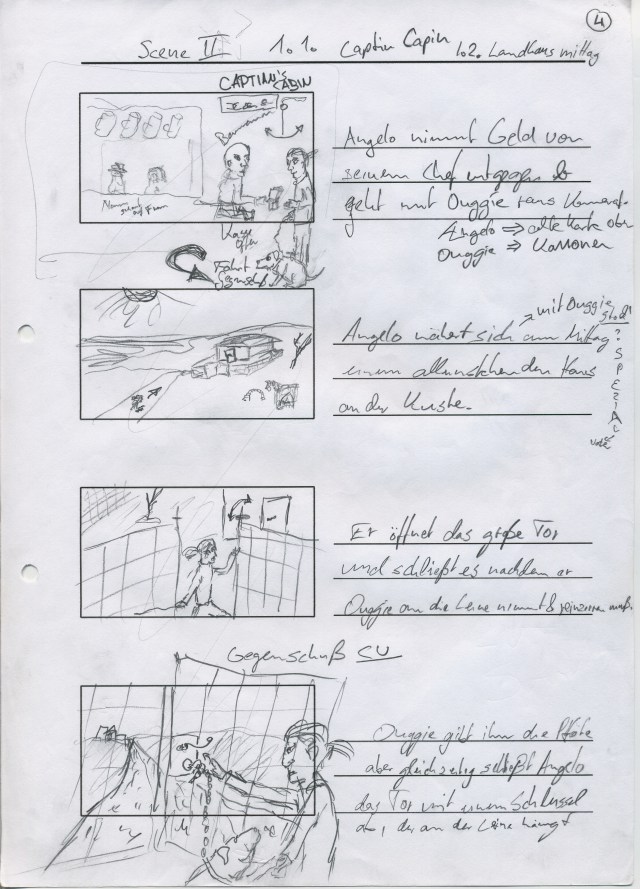 4
Scene II 1.1. Captin Capin 1.2. Landhaus mittag
CAPTIAN'S
CABIN
Barmann
Angelo nimmt Geld von
seinem Chef entgegen &
geht mit Duggie
Angelo ⇒ alte Karte
Duggie ⇒ Kanonen
Fährt
Angelo nähert sich am Mittag
mit Duggie
einem alleinstehenden Haus
an der Küste.
? SPEZIAL
Er öffnet das große Tor
und schließt es nachdem er
Duggie an die Leine nimmt &
Gegenschuß CU
Duggie gibt ihm die Pfote
aber gleichzeitig schließt Angelo
das Tor mit einem Schlüssel
ab, der an der Leine hängt